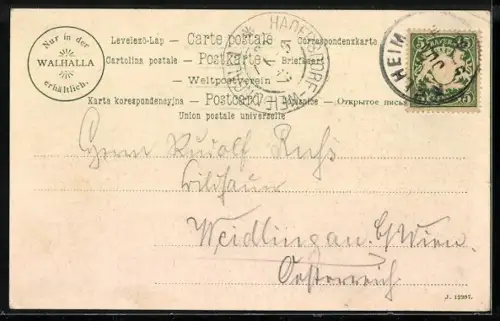 Nur in der
WALHALLA
erhältlich.
Levelező-Lap — Carte postale — Correspondenzkarte
Cartolina postale — Postkarte — Briefkaart
Weltpostverein
Karta korespondencyjna — Postcard — Dopisnice — Открытое письмо
Union postale universelle
HADERSDORF-WEIDLINGAU
HEIM
5 5
Herrn Rudolf
Weidlingau b/Wien
Oesterreich
J. 12987.